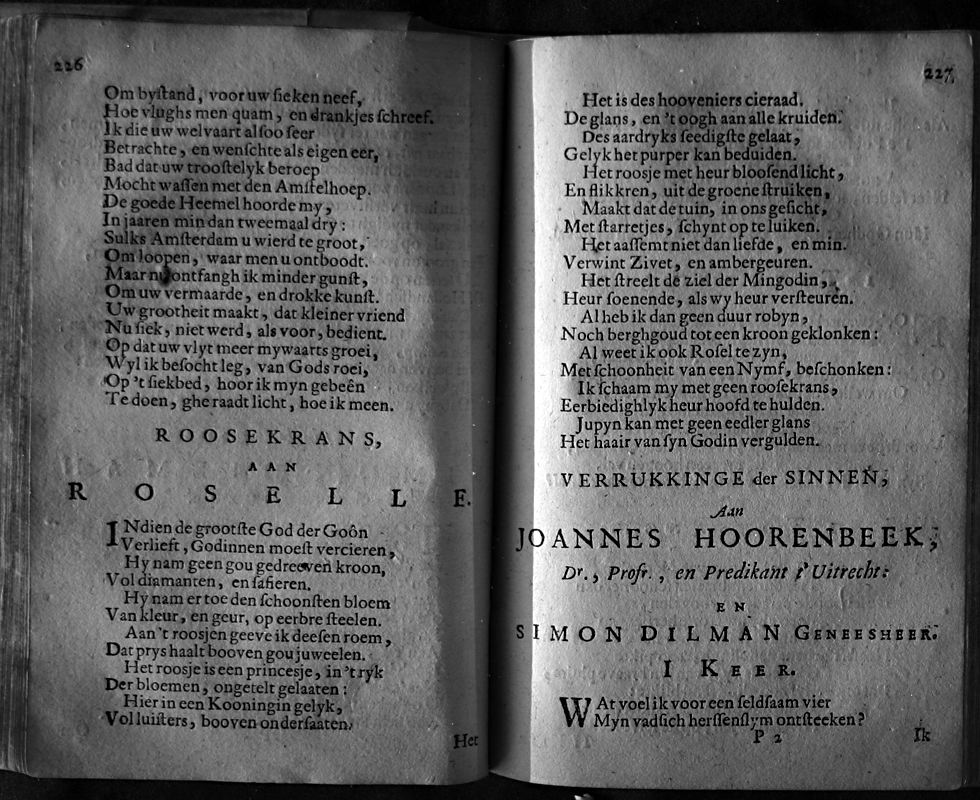 226
Om byſtand, voor uw ſieken neef,
Hoe vlughs men quam, en drankjes ſchreef.
Ik die uw welvaart alſoo ſeer
Betrachte, en wenſchte als eigen eer,
Bad dat uw trooſtelyk beroep
Mocht waſſen met den Amſtelhoep.
De goede Heemel hoorde my,
In jaaren min dan tweemaal dry:
Sulks Amſterdam u wierd te groot,
Om loopen, waar men u ontboodt.
Maar nu ontfangh ik minder gunſt,
Om uw vermaarde, en drokke kunſt.
Uw grootheit maakt, dat kleiner vriend
Nu ſiek, niet werd, als voor, bedient.
Op dat uw vlyt meer mywaarts groei,
Wyl ik beſocht leg, van Gods roei,
Op 't ſiekbed, hoor ik myn gebeên
Te doen, ghe raadt licht, hoe ik meen.
ROOSEKRANS,
AAN
ROSELLE.
INdien de grootſte God der Goôn
Verlieft, Godinnen moeſt vercieren,
Hy nam geen gou gedreeven kroon,
Vol diamanten, en ſafieren.
Hy nam er toe den ſchoonſten bloem
Van kleur, en geur, op eerbre ſteelen.
Aan 't roosjen geeve ik deeſen roem,
Dat prys haalt booven gou juweelen.
Het roosje is een princesje, in 't ryk
Der bloemen, ongetelt gelaaten:
Hier in een Kooningin gelyk,
Vol luiſters, booven onderſaaten.
Het
227
Het is des hooveniers cieraad.
De glans, en 't oogh aan alle kruiden.
Des aardryks ſeedigſte gelaat,
Gelyk het purper kan beduiden.
Het roosje met heur blooſend licht,
En flikkren, uit de groene ſtruiken,
Maakt dat de tuin, in ons geſicht,
Met ſtarretjes, ſchynt op te luiken.
Het aaſſemt niet dan liefde, en min.
Verwint Zivet, en ambergeuren.
Het ſtreelt de ziel der Mingodin,
Heur ſoenende, als wy heur verſteuren.
Al heb ik dan geen duur robyn,
Noch berghgoud tot een kroon geklonken:
Al weet ik ook Roſel te zyn,
Met ſchoonheit van een Nymf, beſchonken:
Ik ſchaam my met geen rooſekrans,
Eerbiedighlyk heur hoofd te hulden.
Jupyn kan met geen eedler glans
Het haair van ſyn Godin vergulden.
VERRUKKINGE der SINNEN,
Aan
JOANNES HOORENBEEK,
Dr., Profr., en Predikant t' Uitrecht:
EN
SIMON DILMAN GENEESHEER.
I KEER.
WAt voel ik voor een ſeldſaam vier
Myn vadſich herſſenſlym ontſteeken?
P 2
Ik